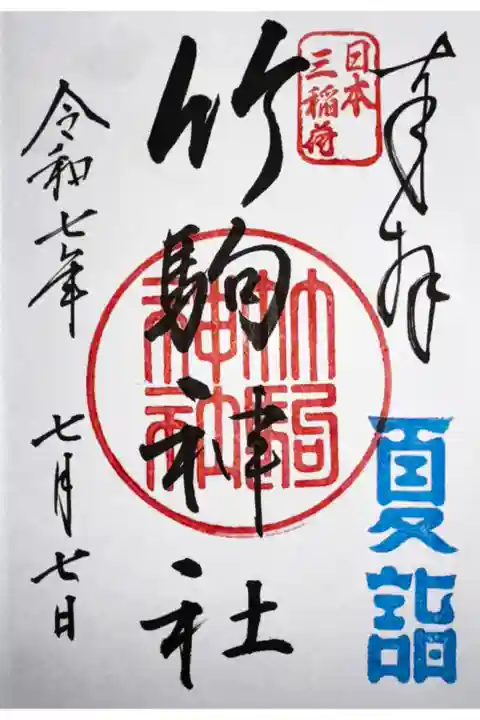 奉拝
夏詣
日本
三稲荷
竹駒神社
竹駒神社
令和七年
七月七日